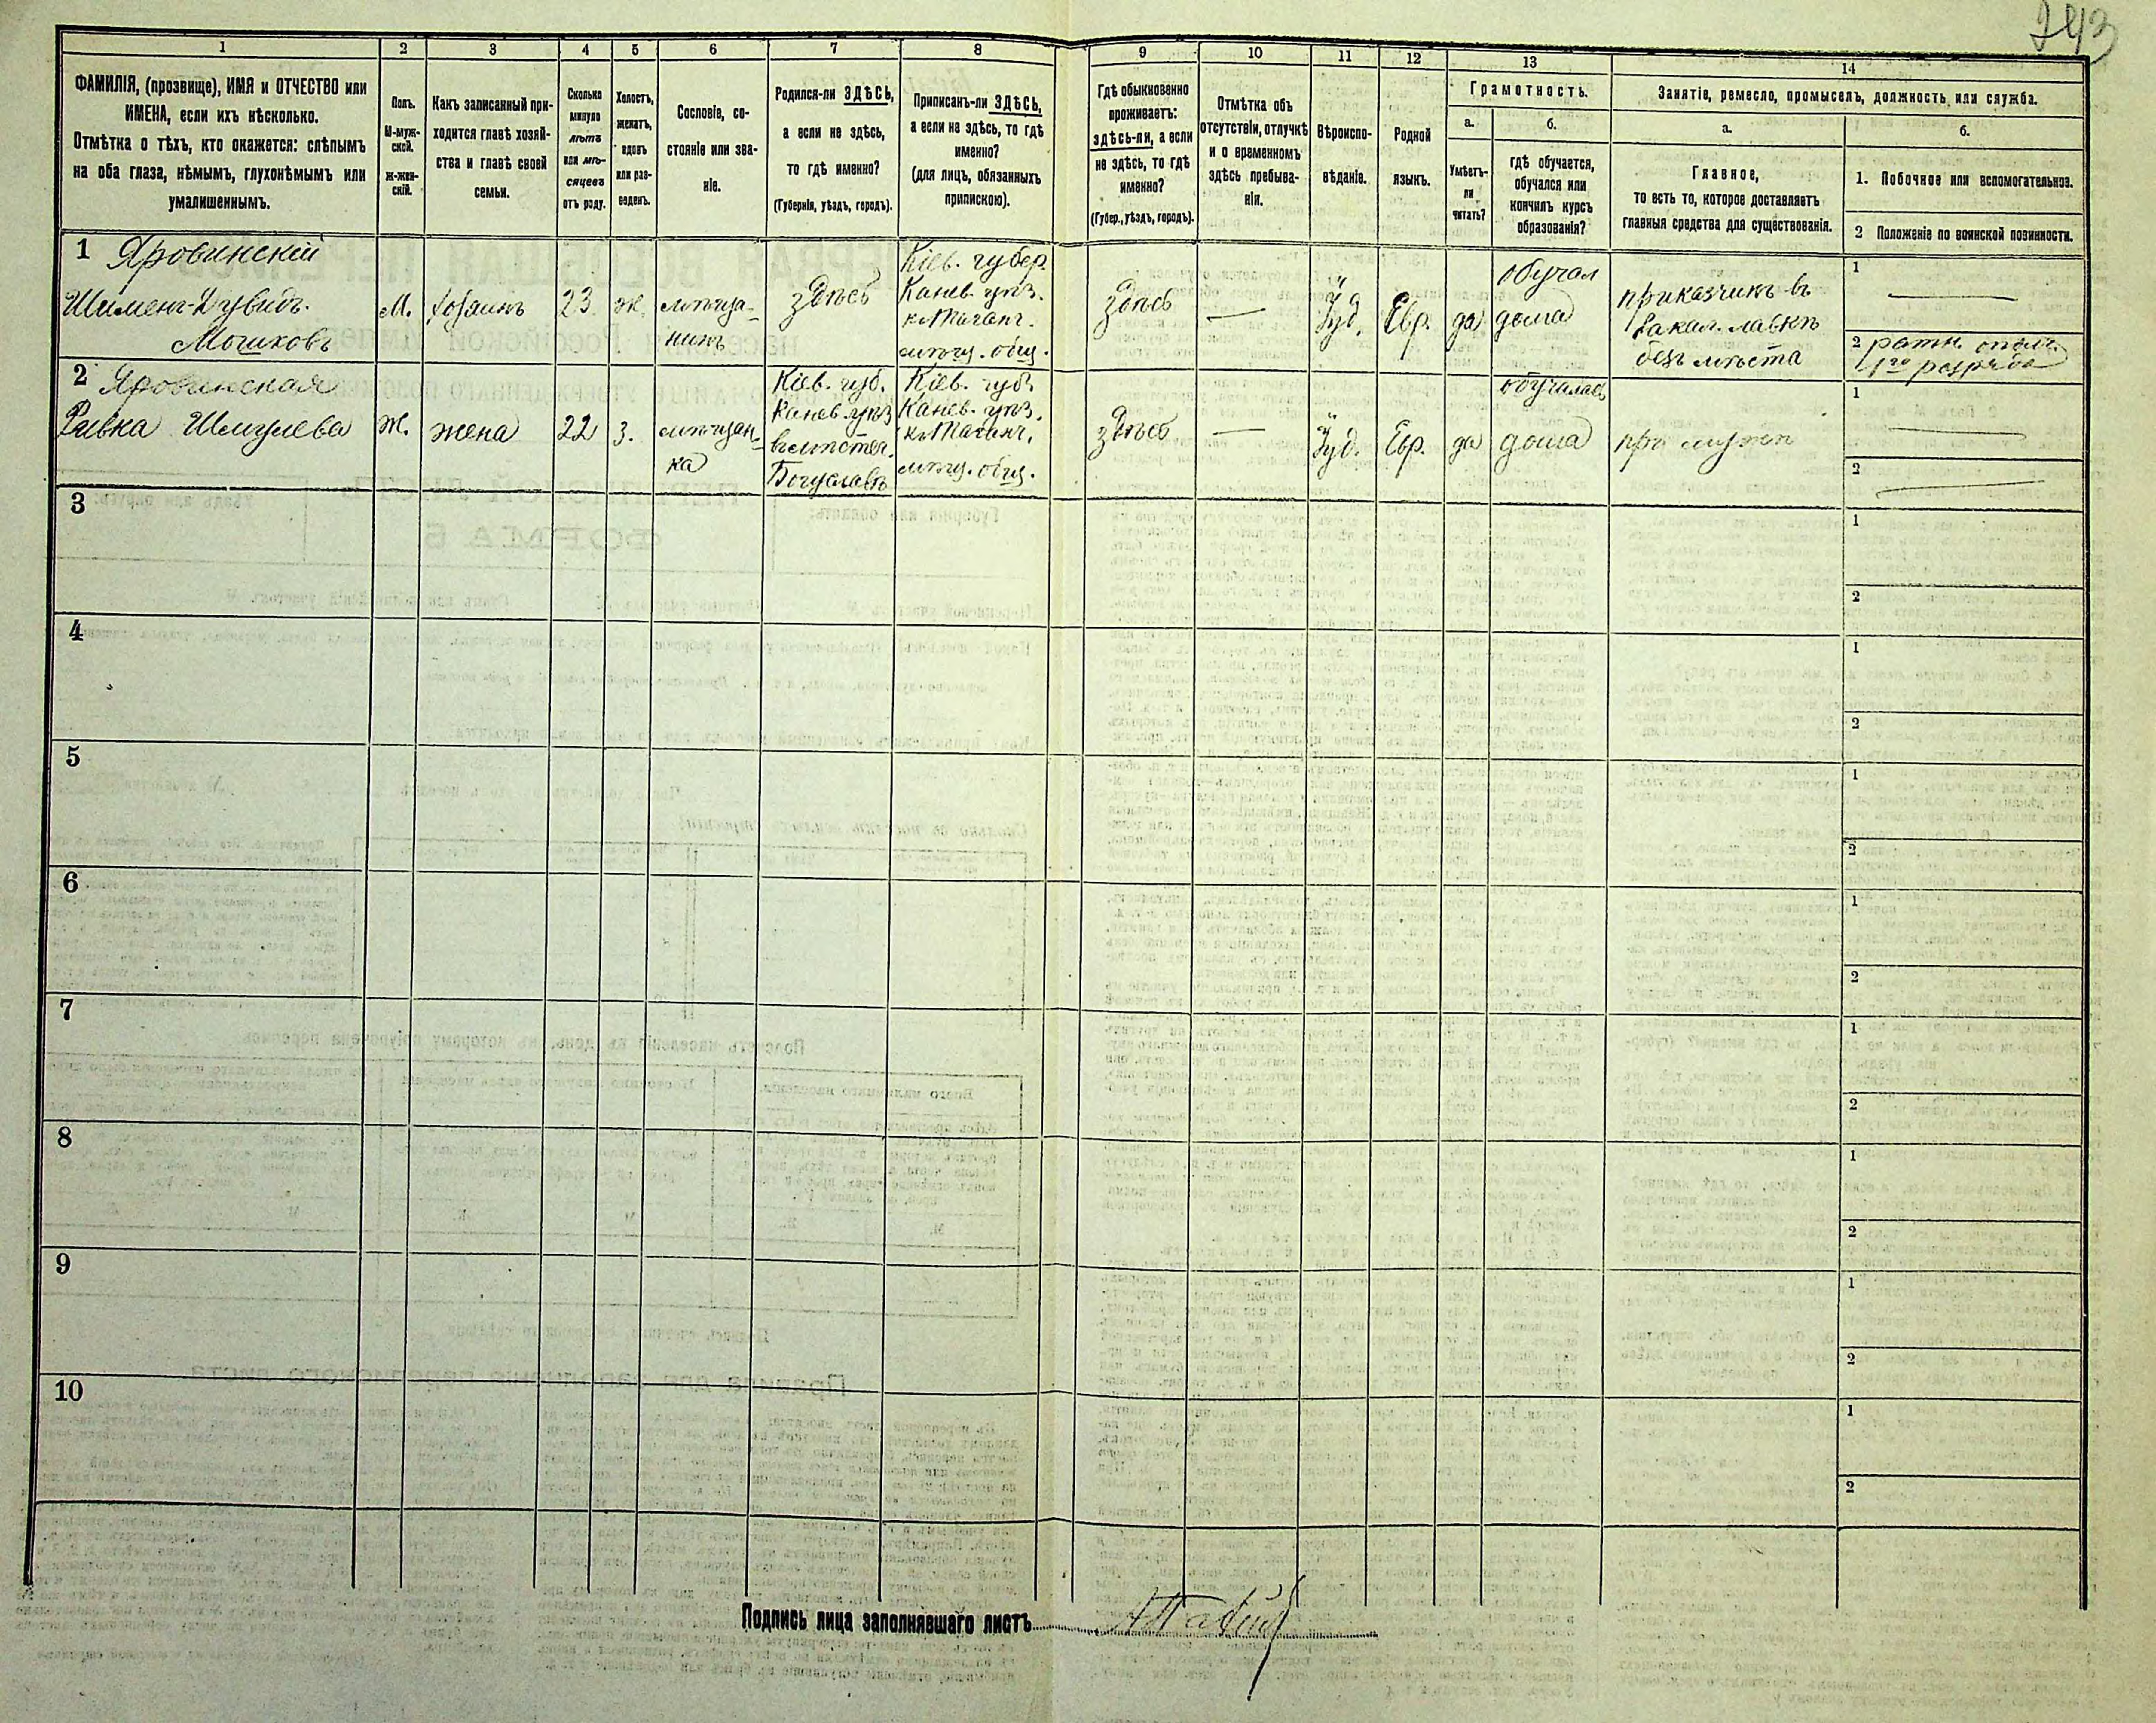 243
1
2
3
4
5
6
7
8
9
10
11
12
13
14
ФАМИЛІЯ, (прозвище), ИМЯ и ОТЧЕСТВО или
ИМЕНА, если ихъ нѣсколько.
Отмѣтка о тѣхъ, кто окажется: слѣпымъ
на оба глаза, нѣмымъ, глухонѣмымъ или
умалишеннымъ.
Полъ.
М-муж-
ской.
Ж-жен-
скій.
Какъ записанный при-
ходится главѣ хозяй-
ства и главѣ своей
семьи.
Сколько
минуло
лѣтъ
или мѣ-
сяцевъ
отъ роду.
Холостъ,
женатъ,
вдовъ
или раз-
веденъ.
Сословіе, со-
стояніе или зва-
ніе.
Родился-ли ЗДѢСЬ,
а если не здѣсь,
то гдѣ именно?
(Губернія, уѣздъ, городъ).
Приписанъ-ли ЗДѢСЬ,
а если не здѣсь, то гдѣ
именно?
(для лицъ, обязанныхъ
припискою).
Гдѣ обыкновенно
проживаетъ:
здѣсь-ли, а если
не здѣсь, то гдѣ
именно?
(Губер., уѣздъ, городъ).
Отмѣтка объ
отсутствіи, отлучкѣ
и о временномъ
здѣсь пребыва-
ніи.
Вѣроиспо-
вѣданіе.
Родной
языкъ.
Грамотность.
а.
Умѣетъ-
ли
читать?
б.
гдѣ обучается,
обучался или
кончилъ курсъ
образованія?
Занятіе, ремесло, промыселъ, должность или служба.
а.
Главное,
то есть то, которое доставляетъ
главныя средства для существованія.
б.
1. Побочное или вспомогательное.
2 Положеніе по воинской повинности.
1 Яровинскій
Шименъ-Дувидъ
Мошковъ
М.
хозяинъ
23
ж.
мѣща-
нинъ
здѣсь
Кіев. губер.
Канев. уѣз.
къ Таганч.
мѣщ. общ.
здѣсь
—
Іуд.
Евр.
да
обучал
дома
приказчикъ въ
бакал. лавкѣ
безъ мѣста
1 —
2 ратн. опол.
1го разряда
2 Яровинская
Ривка Шмулева
Ж.
жена
22
з.
мѣщан-
ка
Кіев. губ.
Канев. уѣз
въ мѣстеч.
Богуславѣ
Кіев. губ.
Канев. уѣз.
къ Таганч.
мѣщ. общ.
здѣсь
—
Іуд.
Евр.
да
обучалась
дома
при мужѣ
1 —
2 —
3
1
2
4
1
2
5
1
2
6
1
2
7
1
2
8
1
2
9
1
2
10
1
2
Подпись лица заполнявшаго листъ